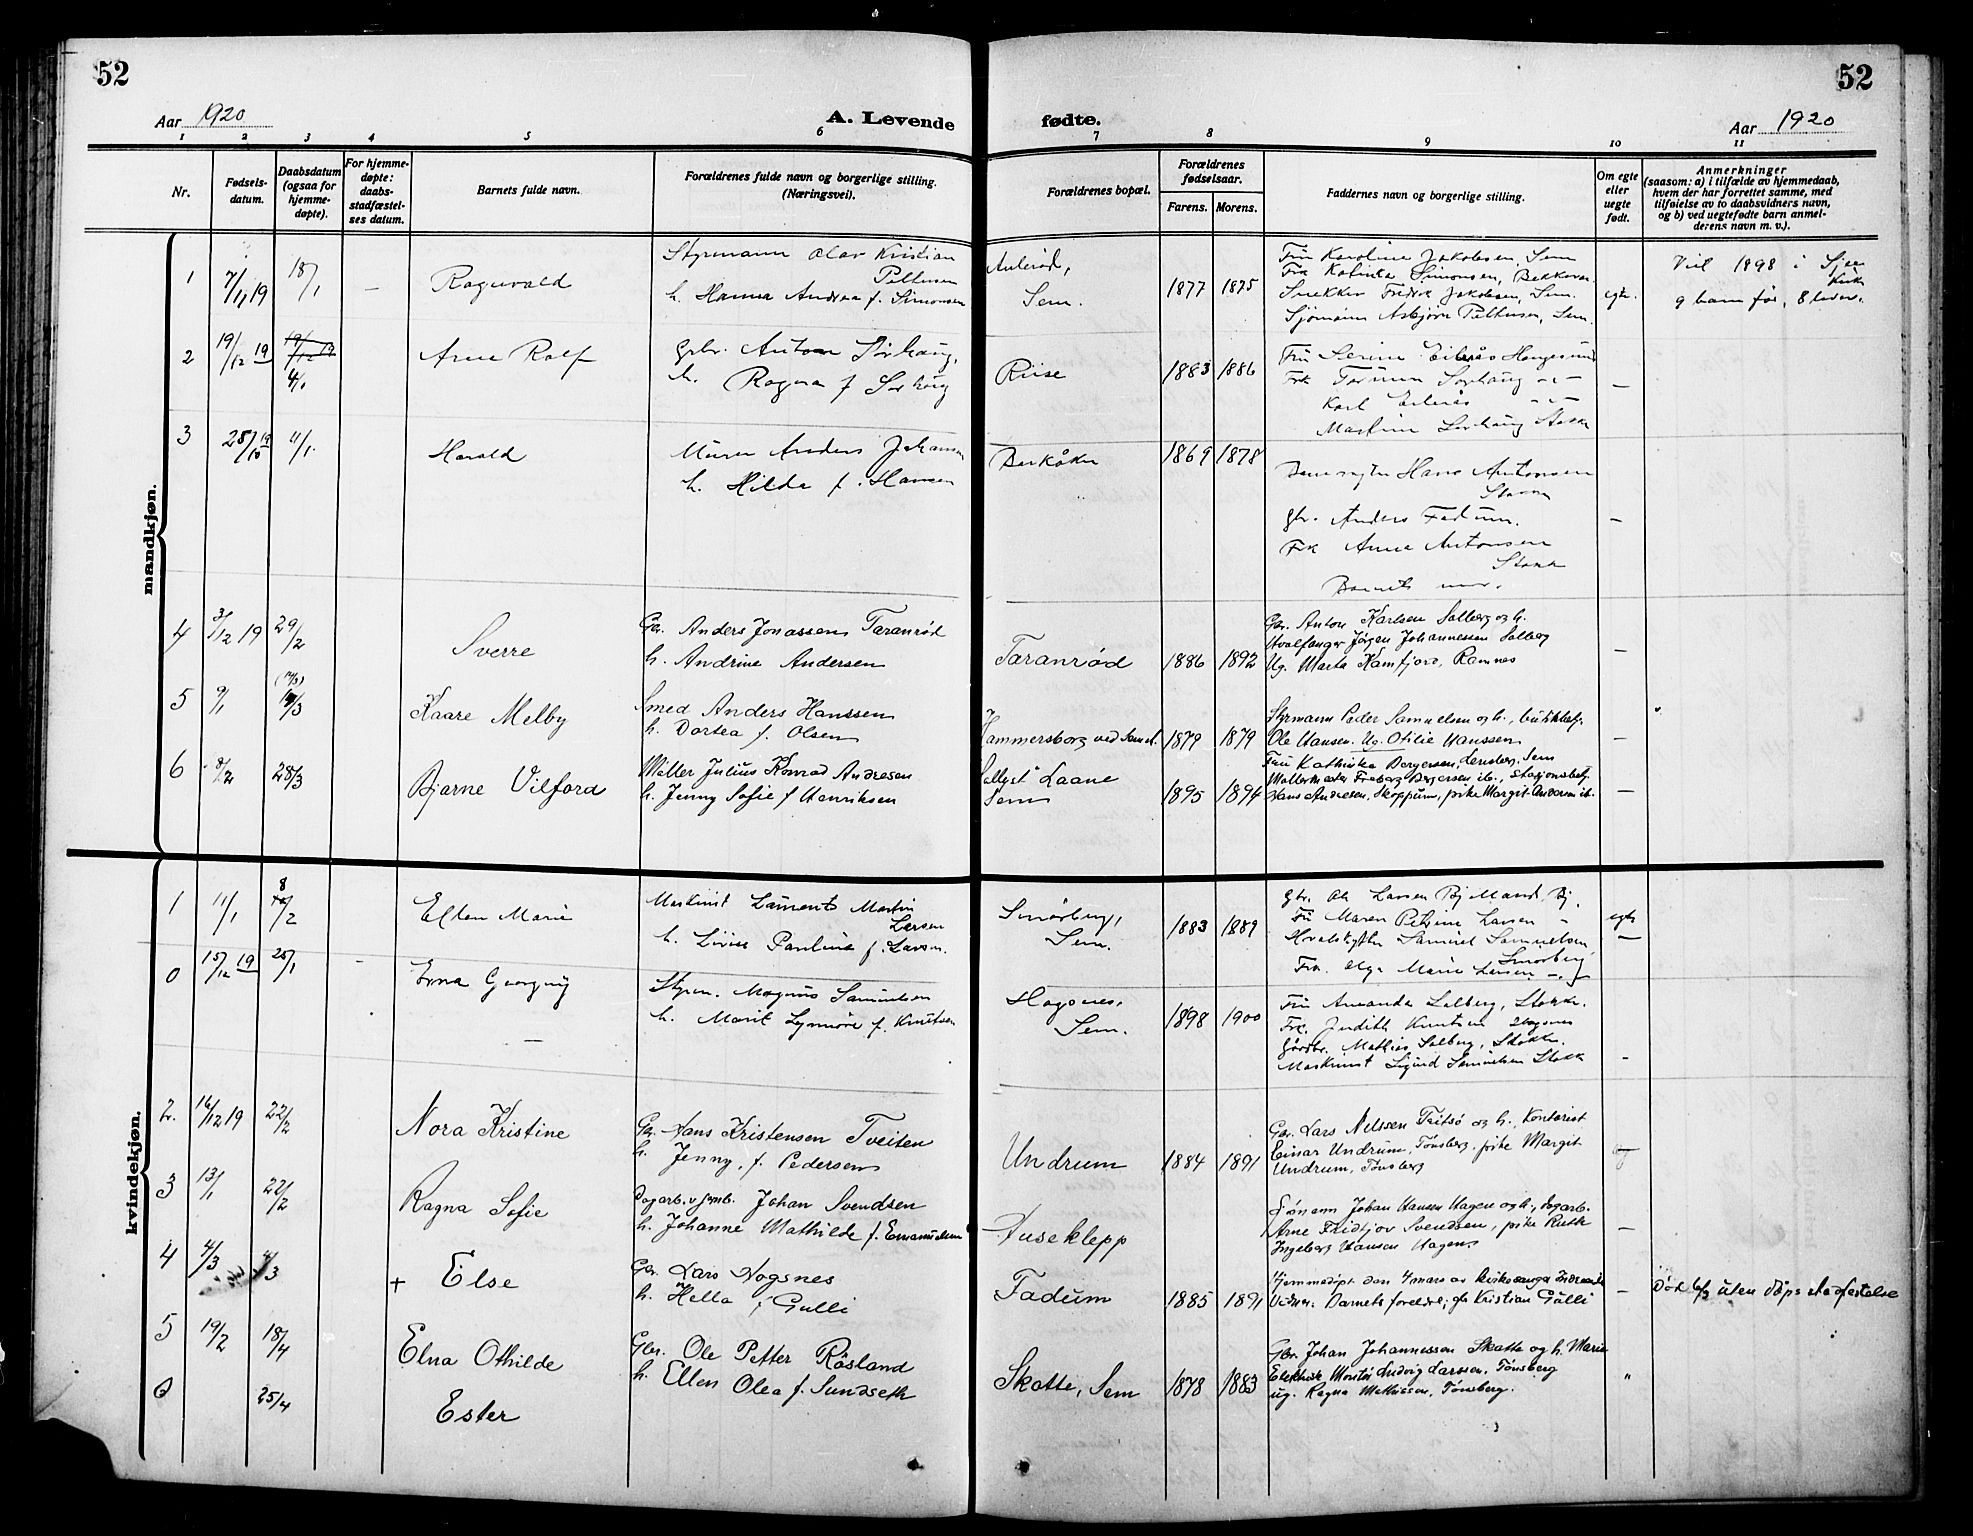 52
52
Aar 1920
A. Levende
fødte.
Aar 1920
1 2 3 4 5 6 7 8 9 10 11
Nr.
Fødsels-
datum.
Daabsdatum
(ogsaa for
hjemme-
døpte).
For hjemme-
døpte:
daabs-
stadfæstel-
ses datum.
Barnets fulde navn.
Forældrenes fulde navn og borgerlige stilling.
(Næringsvei).
Forældrenes bopæl.
Forældrenes
fødselsaar.
Farens. Morens.
Faddernes navn og borgerlige stilling.
Om egte
eller
uegte
født.
Anmerkninger
(saasom: a) i tilfælde av hjemmedaab,
hvem der har forrettet samme, med
tilføielse av to daabsvidners navn,
og b) ved uegtefødte barn anmel-
derens navn m. v.).
mandkjøn.
1 7/11 19 18/1 — Ragnvald
Styrmann Olav Kristian
Pettersen
h. Hanna Andrea f. Simonsen
Sem.
1877 1875
Fru Karoline Jakobsen, Sem
Frk Katinka Simonsen, Bekkevar
Snekker Fredrik Jakobsen, Sem.
Sjömann Asbjörn Pettersen, Sem.
egte.
Viet 1898 i Sem
Kirke
9 barn før, 8 lever.
2 19/12 19 19/12 19
4/1
Arne Rolf
Gbr. Anton Sørhaug,
h. Ragna f Sørhaug
Riise
1883 1886
Karl
—
3 28/10 19 11/1 Harald
Murer Anders Johansen
h. Hilda f. Hansen
Berkåker
1869 1878
Hans Antonsen
Stokke
gbr. Anders Fadum.
Frk Anna Antonsen
Stokke
Barnets mor.
—
4 3/12 19 29/2 Sverre
Gbr. Anders Jonassen Taranrød
h. Andrine Andersen
Taranrød 1886 1892
Gbr. Anton Karlsen Solberg og h.
Hvalfanger Jørgen Johannessen Solberg
Ug. Marta Kamfjord, Ramnes
—
5 9/1 14/3 Kaare Melby
Smed Anders Hanssen
h. Dortea f. Olsen
Hammersborg ved Sem st. 1879 1879
Styrmann Peder Samuelsen og h., butikkbetj.
Ole Hansen. Ug. Otilie Hanssen
—
6 8/2 28/3 Bjarne Vilford
Møller Julius Konrad Andresen
h. Jenny Sofie f Henriksen
Laane
Sem
1895 1894
Fru Kathinka Bergersen, Lensberg, Sem
Møllermester Fredberg Bergersen ib., Stasjonsbetj.
Hans Andresen, Skoppum, pike Margit Andersen ib.
—
kvindekjøn.
1 11/1 8/2 Ellen Marie
Maskinist Laurents Martin
Larsen
h. Lovise Pauline f. Larsen.
Smörberg,
Sem.
1883 1889
gbr. Ole Larsen
Fru Maren Petrine Larsen
Hvalskytter Samuel Samuelsen
Smorberg
Frk. Olga Marie Larsen
egte
—
0 15/12 19 25/1 — Erna Georgine
Styrm. Magnus Samuelsen
h. Marit Lynmöre f. Knutsen
Hogsnes,
Sem.
1898 1900
Fru Amanda Solberg, Stokke.
Frk. Judith Knutsen Hogsnes
Gårdbr. Mathias Solberg, Stokke.
Maskinist Sigurd Samuelsen Stokke
-
2. 16/12 19 22/2 Nora Kristine
Gbr. Hans Kristensen Tveiten
h. Jenny, f. Pedersen
Undrum 1884 1891
Gbr. Lars Nilssen Tritsö og h., Kontorist
Einar Undrum, Tønsberg. pike Margit
Undrum, Tønsberg
3 13/1 22/2 Ragna Sofie
Dagarb. v jernb. Johan Svendsen
h. Johanne Mathilde f. Emanuelsen
Auseklepp
Sjömann Johan Hansen Hagen og h., dagarb.
Arne Fridtjov Svendsen, pike Ruth
Ingeborg Hansen Hagen
—
4 4/3 4/3 + Else
Gbr. Lars Hogsnes
h. Hella f Gulli
Fadum 1885 1891
Hjemmedöpt den 4 mars av kirkesanger
Vidner: Barnets foreldre; gbr Kristian Gulli
—
Död 6/3 uten dåps stadfestelse
5 19/2 18/4 Elna Othilde
Gbr. Ole Petter Røsland
h. Ellen Olea f. Sundseth
Skatte, Sem 1878 1883
Gbr. Johan Johannessen Skatte og h. Marie
Elektrisk Montör Ludvig Larssen, Tønsberg
ug. Ragna Mathissen, Tønsberg.
"
0 25/4 Ester